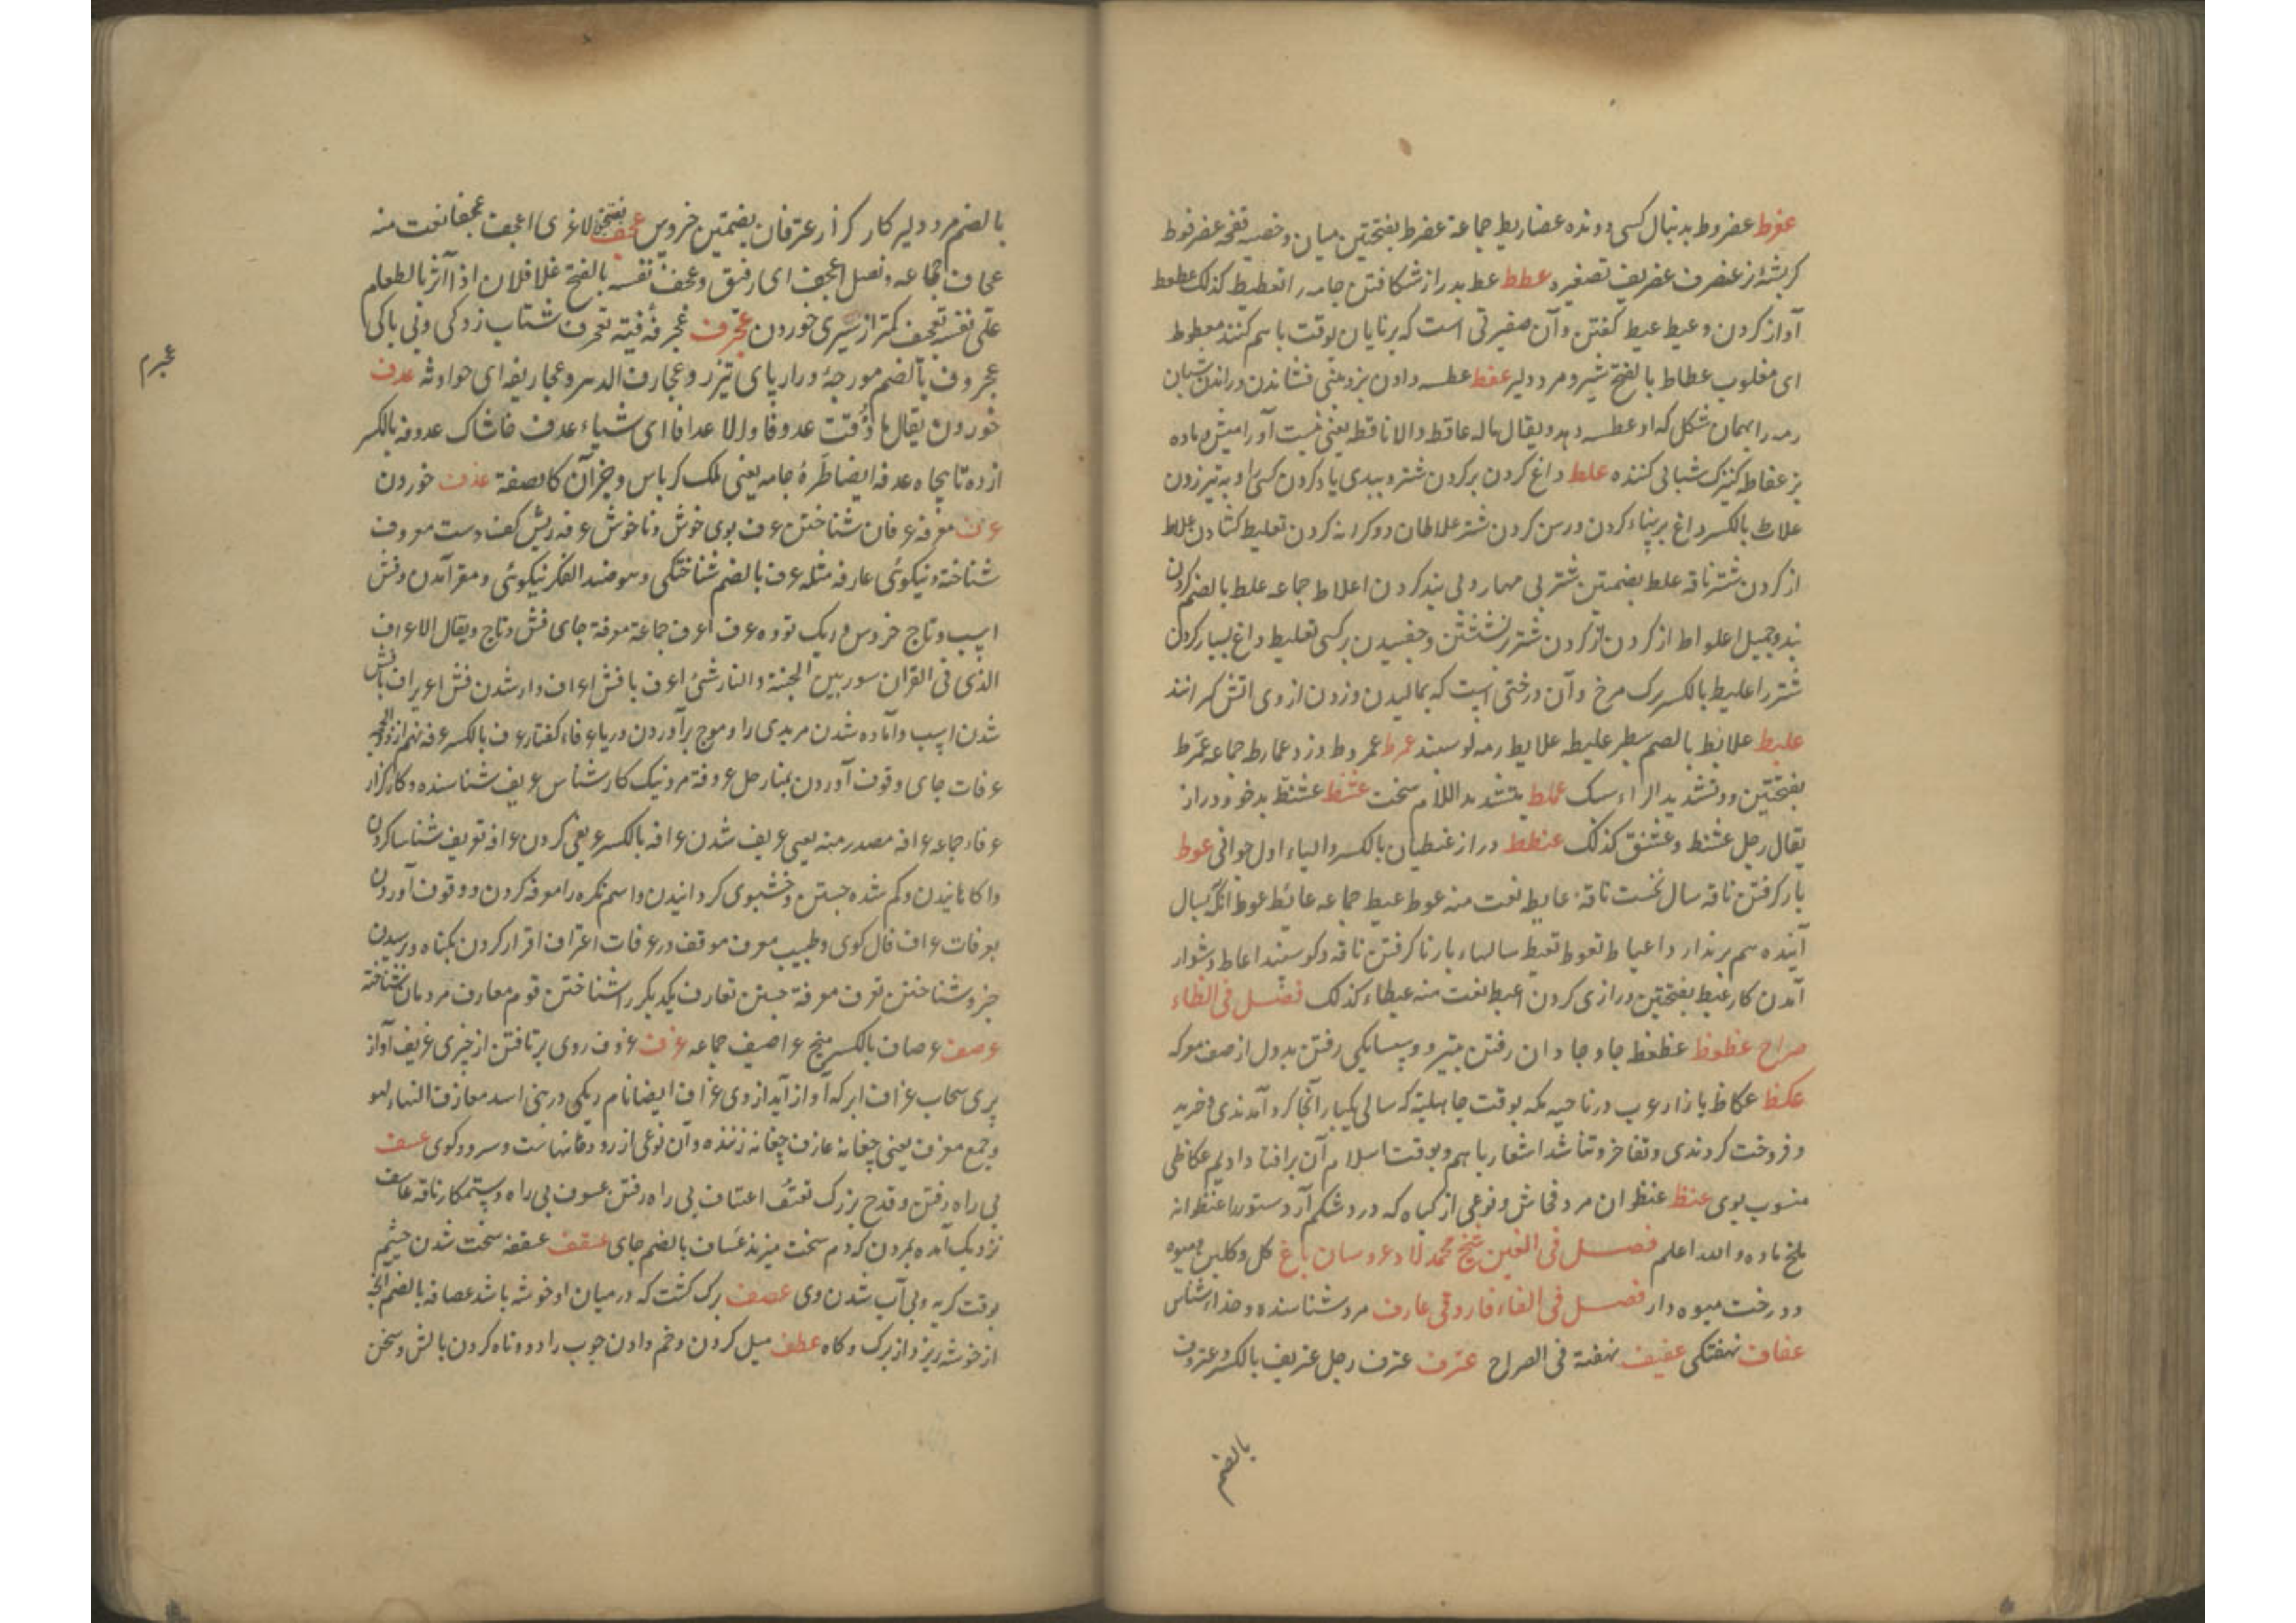 عفرط عضروط بدنبال کسی دونده عضاریط جماعة عضرط بفتحتین میان وخصیه قفحه عضرفوط
کربشهٔ نر عضرف عضریف تصغیره عطط عط بدرازشکافتن جامه را تعطیط کذلک عطعط
آواز کردن و عیط عیط کفتن و آن صغیرتی است که برنایان بوقت باهم کنند معطوط
ای مغلوب عطاط بالفتح شیر و مرد دلیر عفط عطسه دادن بز و بینی فشاندن و راندن شبان
رمه را بهمان شکل که او عطسه دهد و یقال ماله عافط والا نافطه یعنی نیست او را میش و ماده
بز عفاط کنیزک شبانی کننده علط داغ کردن بر کردن شتر و ببدی یاد کردن کسی را و به تیر زدن
علاط بالکسر داغ بر پناء کردن و رسن کردن شتر علاطان دو کرانه کردن تعلیط کشادن علاط
از کردن شتر ناقه علط بضمتین شتر بی مهار و بی بند کردن اعلاط جماعه علط بالضم کردن
بند وجمیل اعلواط از کردن شتر برنشستن و جفسیدن بر کسی تعلیط داغ بسیار کردن
شتر را اعلیط بالکسر برک مرخ و آن درختی است که بمالیدن و زدن از وی اتش کیرانند
علبط علابط بالضم سطبر علیطه علابط رمه کوسبند عمرط عمروط دزد عمارط جماعه عمرط
بفتحتین و و تشدید الراء سبک عملط بتشدید اللام سخت عشنط عشنط بدخو و دراز
یقال رجل عشنط و عشنق کذلک عنطط دراز عنطیان بالکسر والیاء اول جوانی عوط
بار کرفتن ناقه سال نخست ناقة عایط نعت منه عوط عیط جماعه عائط عوط انکه بسال
آینده هم بر ندارد اعیاط تعوط تعیط سالهاء بار نا کرفتن ناقه و کوسبند اعاط دشوار
آمدن کار عیط بفتحتین درازی کردن اعیط نعت منه عیطاء کذلک فصل فی الظاء
صراح عظوظ عظعظ جاو جاوان رفتن بتیر و و پسایکی رفتن بددل از صف معرکه
عکظ عکاظ بازار عرب در ناحیه مکه بوقت جاهلیة که سالی یکبار آنجا کرد آمدندی و خرید
و فروخت کردندی و تفاخر و تناشد اشعار باهم و بوقت اسلام آن بر افتاد ادیم عکاظی
منسوب بوی عنظ عنظوان مرد فحاش و نوعی از کیاه که درد شکم آرد ستور را عنظوانه
ملخ ماده والله اعلم فصل فی الغین شیخ محمد لاد عروسان باغ کل و کلبن و میوه
و درخت میوه دار فصل فی الفاء فاروقی عارف مرد شناسنده و خداشناس
عفاف نهفتکی عفیف نهفته فی الصراح عترف عترف رجل عتریف بالکسر و عتروف
بالضم
بالضم مرد دلیر کار کزار عترفان بضمتین خروس عجف بفتحتین لاغری اعجف عجفا نعت منه
عجاف جماعه و نصل اعجف ای رقیق و عجف نفسه بالفتح علا فلان اذا آثر بالطعام
علی نفسه تعجیف کمتر از سیری خوردن عجرف عجرفة فیته تعجرف شتاب زدکی و بی باکی
عجرم
عجروف بالضم مورچهٔ دراز پای تیزرو عجارف الدهر و عجاریفه ای حوادثه عدف
خوردن یقال ما ذقت عدوفا ولا عدافا ای شیاء عدف خاشاک عدوفه بالکسر
از ده تا پنجاه عدفه ایضا طرهٔ جامه یعنی ملک کرباس و جز آن کالصفة عذف خوردن
عرف معرفه عرفان شناختن عرف بوی خوش و ناخوش عرفه ریش کف دست معروف
شناخته و نیکوئی عارفه مثله عرف بالضم شناختکی و هو ضد النکر نیکوئی و مقر آمدن و فش
اسپ و تاج خروس و ریک توده عرف اعرف جماعة معرفة جای فش و تاج و یقال الاعراف
الذی فی القران سور بین الجنة والنار شیٔ اعرف با فش اعراف دار شدن فش اعریراف با فش
شدن اسپ و آماده شدن مر بدی را و موج برآوردن دریا عرفاء کفتار عرف بالکسر
عرفات جای وقوف آوردن بمنا رجل عروفة مرد نیک کارشناس عریف شناسنده و کارکزار
عرفاء جماعه عرافه مصدر منه یعنی عریف شدن عرافه بالکسر عریفی کردن عرافه تعریف شناسا کردن
و اکاهانیدن و کم شده جستن و خشبوی کردانیدن و اسم نکره را معرفه کردن و وقوف آوردن
بعرفات عراف فال کوی و طبیب معرف موقف در عرفات اعتراف اقرار کردن بکناه و پرسیدن
خبر و شناختن تعرف معرفة جستن تعارف یکدیکر را شناختن قوم معارف مردمان شناخته
عرصف عرصاف بالکسر میخ عراصیف جماعه عزف عزوف روی برتافتن از چیزی عزیف آواز
پری سحاب عزاف ابر که آواز آید از وی عزاف ایضا نام ریکی در بنی اسد معازف الهاء لهو
و جمع معزف یعنی چغانه عازف چغانه زننده و آن نوعی از رودخانهاست و سرود کوی عسف
بی راه رفتن و قدح بزرک تعسف اعتساف بی راه رفتن عسوف بی راه و ستمکار ناقه عاسف
نزدیک آمده بمردن که دم سخت میزند عساف بالضم جای عسقف عسقفه سخت شدن چشم
بوقت کریه و بی آب شدن وی عصف برک کشت که در میان او خوشه باشد عصافه بالضم آنچه
از خوشه ریزد از برک و کاه عطف میل کردن و خم دادن چوب را و دوتاه کردن بالش و سخن